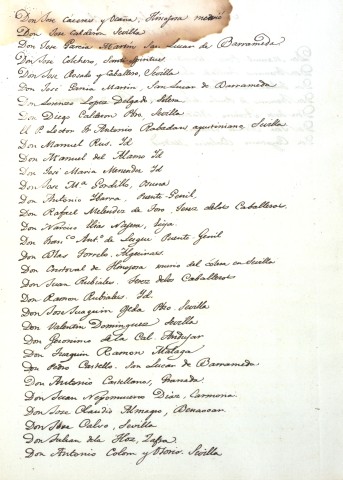 Don Jose Caceres y Ocaña, Hinojosa medico
Don Jose Calderon Sevilla
Don Jose Garcia Martin San Lucar de Barrameda
Don Jose Colchero, Santi Spiritus
Don Jose Rosado y Caballero, Sevilla
Don José Garcia Martin, San Lucar de Barrameda
Don Lorenzo Lopez Delgado
Don Diego Calderon Pbro Sevilla
U. P. Lector Fr Antonio Rabadan agustiniano Sevilla
Don Manuel Rus. Id
Don Manuel del Alamo Id
Don José Maria Menendez Id
Don Jose Ma Gordillo, Osuna
Don Antonio Ibarra, Puente-Genil
Don Rafael Melendez de Toro, Xerez de los Caballeros
Don Narciso Elias Najera, Ecija
Don Antº de Luque Puente Genil
Don Blas Torrelo, Algeciras
Don Cristoval de Hinojosa en Sevilla
Don Juan Rubiales. Xerez de los Caballeros
Don Ramon Rubiales, Id
Don Jose Joaquin Pbro Sevilla
Don Valentin Dominguez Sevilla
Don Geronimo de la Cal Andujar
Don Joaquin Ramon Malaga
Don Pedro Castello. San Lucar de Barrameda
Don Antonio Castellano, Granada
Don Juan Nepomuceno Diaz, Carmona
Don Jose Claudio Almagro, Benaocan
Don Calvo, Sevilla
Don Julian de la Hoz, Zafra
Don Antonio Colom y Osorio. Sevilla